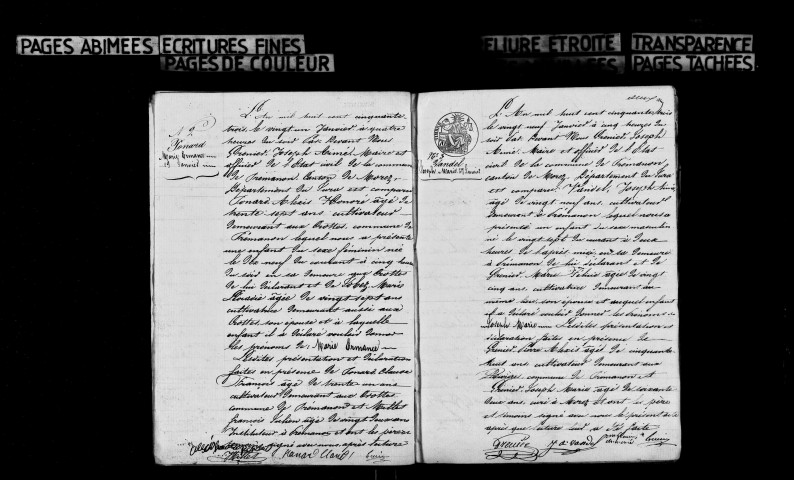 PAGES ABIMEES ECRITURES FINES
PAGES DE COULEUR
ELIURE ETROITE TRANSPARENCE
PAGES TACHEES
N° 2
Marie Ermance
L'An mil huit cent cinquante
trois, le vingt un Janvier à quatre
heures du soir Par Devant Nous
Grenier, Joseph Aimé Maire et
officier de l'Etat civil de la commune
de Prémanon, Canton de Morez,
Département du Jura est comparu
Alexis Honoré âgé de
trente sept ans cultivateur
demeurant aux commune de
Prémanon lequel nous a présenté
une enfant du sexe féminin née
le dix neuf du courant à cinq heures
du soir en sa demeure aux
de lui déclarant et de Marie
âgée de vingt sept ans
cultivatrice demeurant aussi aux
son épouse et à laquelle
enfant il a déclaré vouloir donner
les prénoms de Marie Ermance
Lesdites présentation et déclaration
faites en présence de Claude
François âgé de trente un ans
cultivateur demeurant aux
commune de Prémanon et
françois Julien âgé de vingt
Instituteur à Prémanon et ont les père et
signé avec nous après lecture
N° 3
Vandel
Joseph Marie
L'An mil huit cent cinquante trois
le vingt neuf Janvier à cinq heures du
soir Par Devant Nous Grenier, Joseph
Aimé, Maire et officier de l'Etat
civil de la commune de Prémanon,
canton de Morez, Département du Jura
est comparu Vandel, Joseph
âgé de vingt neuf ans, cultivateur
demeurant à Prémanon lequel nous a
présenté un enfant du sexe masculin
né le vingt sept du courant à deux
heures de l'après midi en sa demeure
à Prémanon de lui déclarant et de
Grenier Marie âgée de vingt
cinq ans cultivatrice demeurant au
même lieu son épouse et auquel enfant
il a déclaré vouloir donner les prénoms de
Joseph Marie Lesdites présentation et
déclaration faites en présence de
Grenier Pierre Alexis âgé de cinquante
huit ans cultivateur demeurant aux
commune de Prémanon et
Grenier Joseph Marie âgé de soixante
deux ans, à Morez et ont les père
et témoins signé avec nous le présent acte
après que lecture leur a été faite